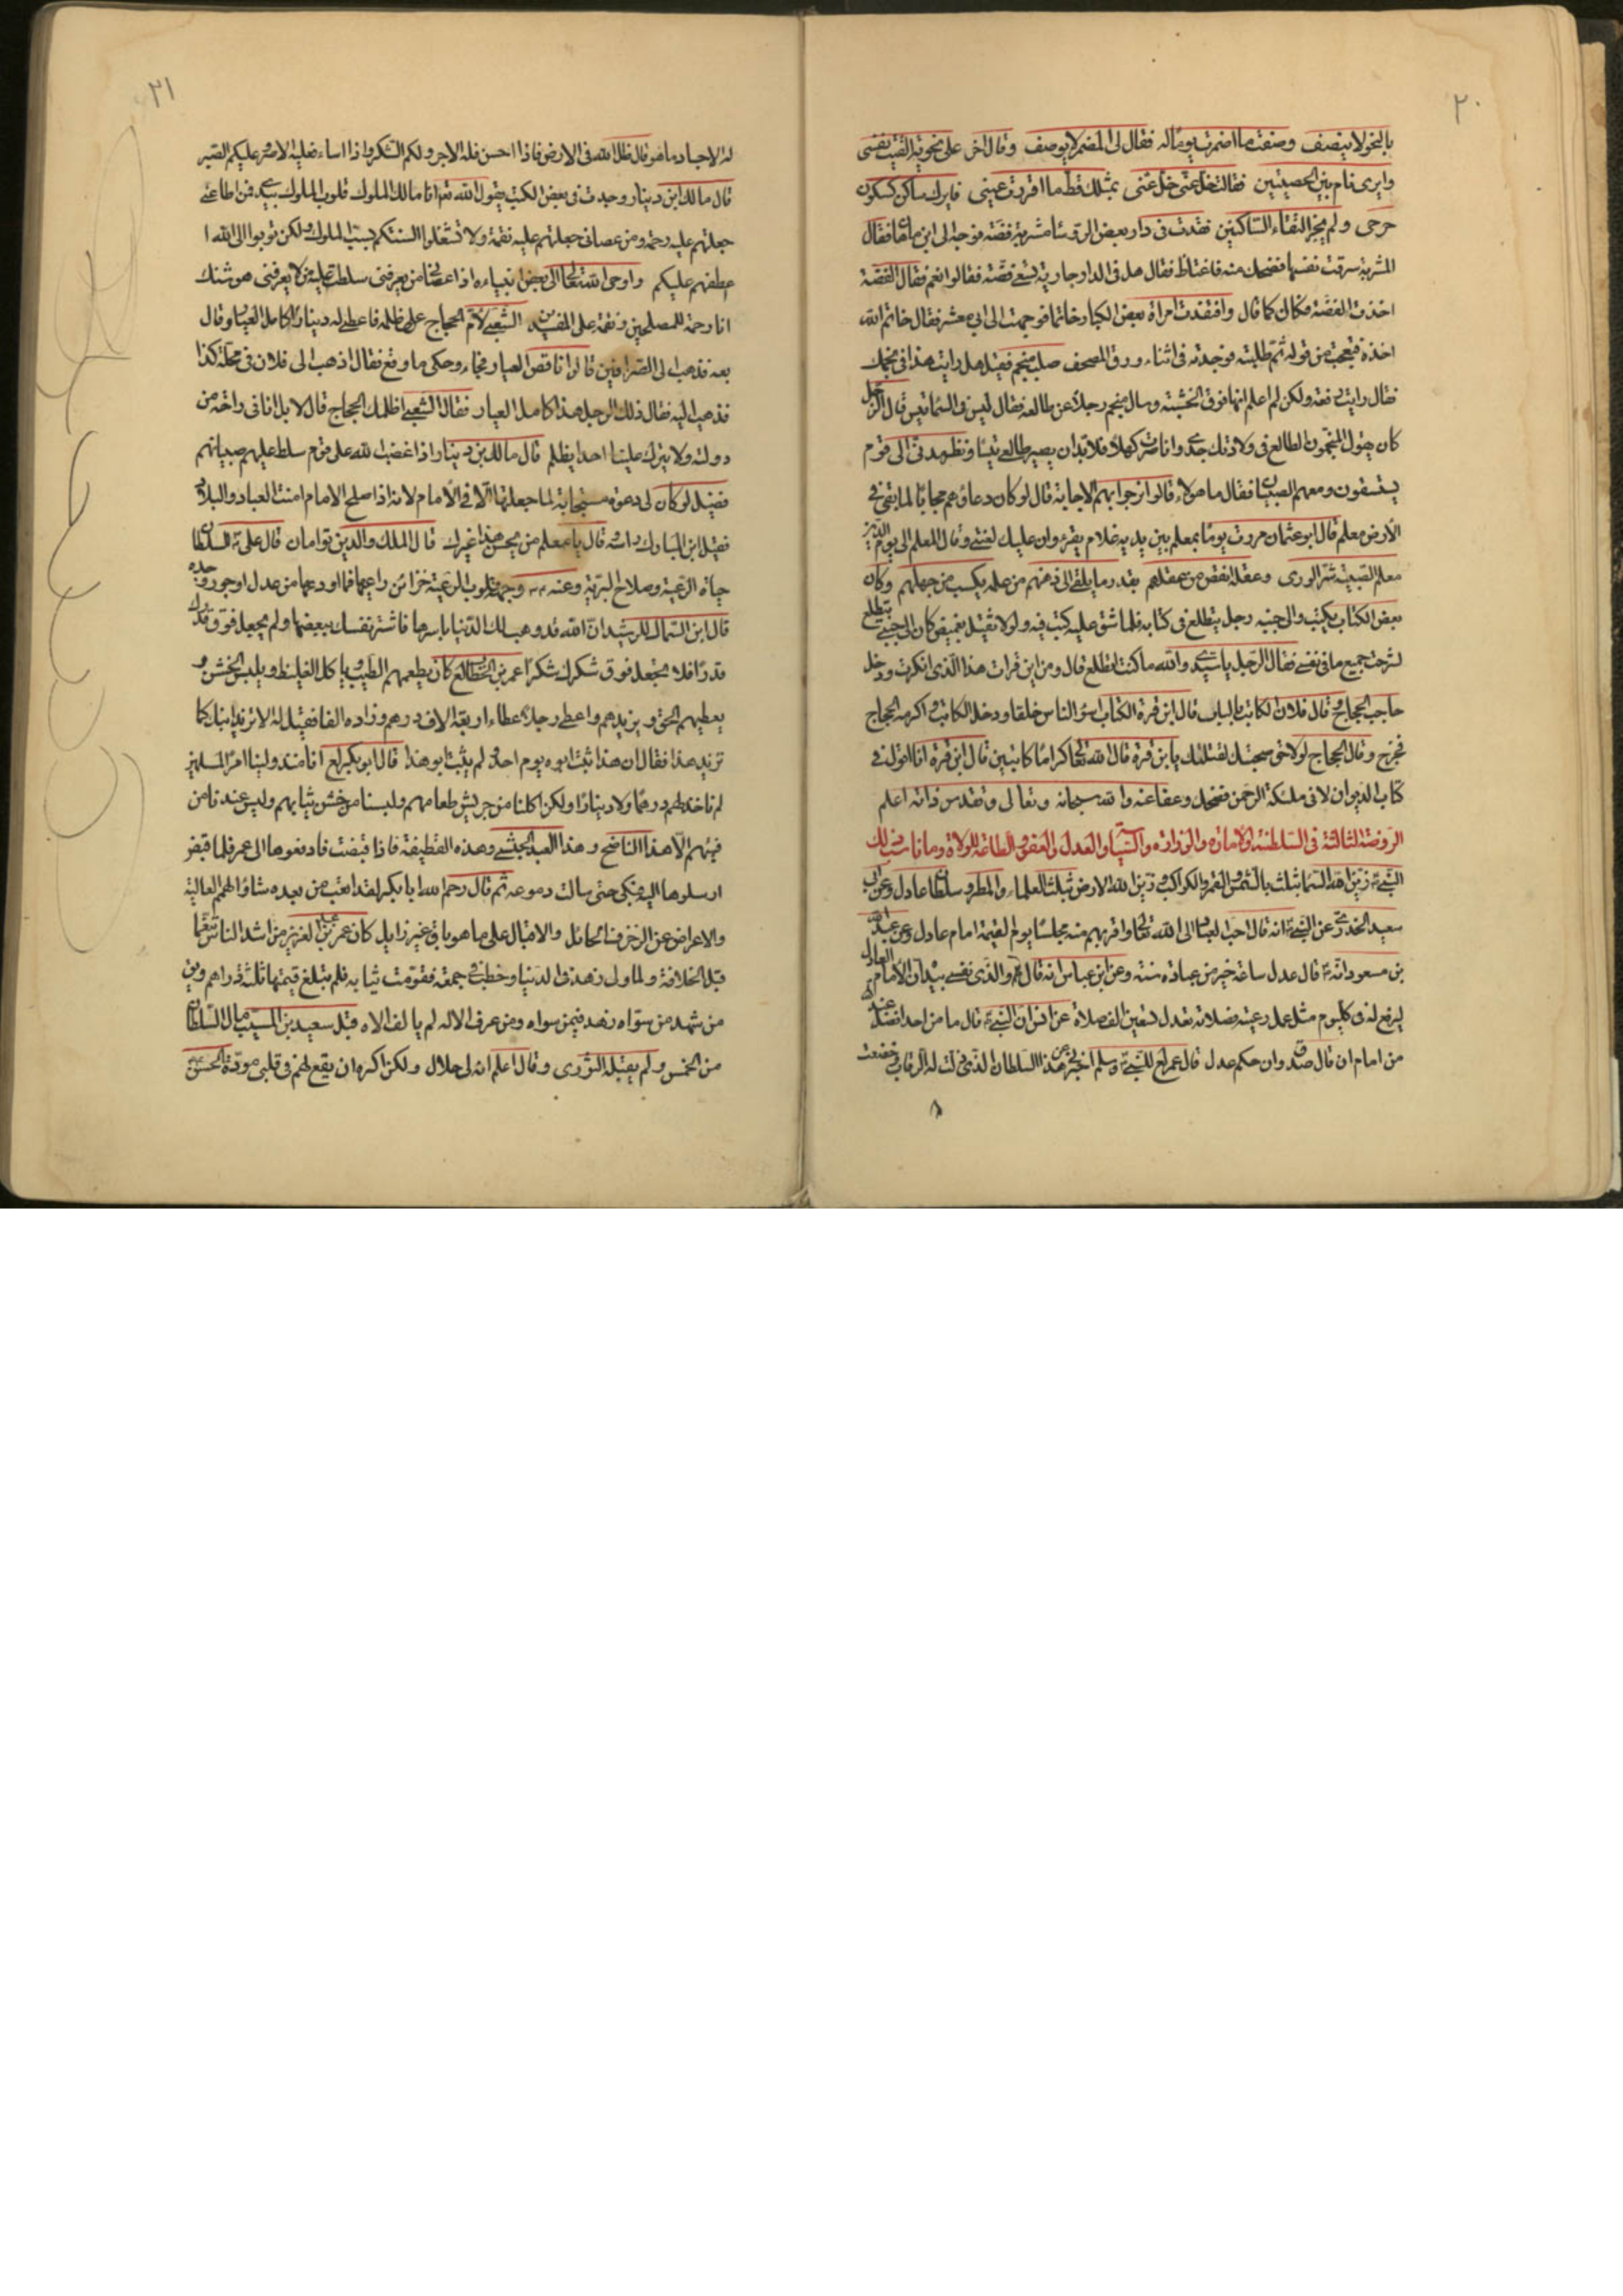 ٢٠
بالنحو لا ينصف وصفت ما اضمرت يوما له فقال لى المضمر لا يوصف وقال اخر على نحوية القيت نفسى
وايرى نام بين الخصيتين فقالت خل عنى خل عنى بمثلك قط ما اقررت عينى فايرك ساكن كسكون
حرحى ولم يجز التقاء الساكنين فقدت فى دار بعض الروسا مشربة فضة فوجه الى ابن ماهان فقال
المشربة سرقت نفسها فضحك منه فاغتاظ فقال هل فى الدار جارية تسمى فضة فقالوا نعم فقال الفضة
اخذت الفضة فكان كما قال وافتقدت امراة بعض الكبار خاتما فوجهت الى ابى معشر فقال خاتم الله
اخذه فتعجبت من قوله ثم طلبته فوجدته فى اثناء ورق المصحف صلب منجم فقيل هل رايت هذا فى نجمك
فقال رايت رفعة ولكن لم اعلم انها فوق الخشبة وسال منجم رجلا عن طالعه فقال تيس فى السماء تيس قال الرجل
كان يقول المنجمون الطالع فى ولادتك جدى وانا صرت كهلا فلا بد ان يصير طالعى تيسا ونظر مدنى الى قوم
يستسقون ومعهم الصبيان فقال ما هؤلاء قالوا نرجو بهم الاجابة قال لو كان دعاؤهم مجابا لما بقى فى
الارض معلم قال ابو عثمان مررت يوما بمعلم بين يديه غلام يقرء وان عليك لعنتى وقال المعلم الى يوم الدين
معلم الصبية شر الورى وعقله انقص من عقلهم بقدر ما يلقى الى ذهنهم من علمه يكسب من جهلهم وكان
بعض الكتاب يكتب والى جنبه رجل يتطلع فى كتابه فلما شق عليه كتب فيه ولولا ثقيل بغيض كان الى جنبى يتطلع
لشرحت جميع ما فى نفسى فقال الرجل يا سيدى والله ما كنت اتطلع قال ومن اين قرات هذا الذى انكرت ودخل
حاجب الحجاج وقال فلان الكاتب بالباب قال ابن قرة الكتاب اسؤ الناس خلقا ودخل الكاتب واكرمه الحجاج
فخرج وقال الحجاج لولا حق صحبتك لقتلتك يا بن قرة قال الله تعالى كراما كاتبين قال ابن قرة انا اقول فى
كتاب الديوان لا فى ملئكة الرحمن فضحك وعفا عنه والله سبحانه وتعالى وتقدس ذاته اعلم
الروضة الثالثة فى السلطنة والامارة والوزارة والسياسة والعدل والعفو والطاعة للولاة وما ناسب ذلك
النبى زين الله السماء بثلث بالشمس والقمر والكواكب وزين الله الارض بثلث العلماء والمطر وسلطان عادل وعن ابى
سعيد الخدرى عن النبى انه قال احب العباد الى الله تعالى واقربهم منه مجلسا يوم القيمة امام عادل وعن عبد الله
بن مسعود انه قال عدل ساعة خير من عبادة سنة وعن ابن عباس انه قال والذى نفسى بيده ان الامام العادل
ليرفع له فى كل يوم مثل عمل رعيته وصلاته تعدل تسعين الف صلاة عن انس ان النبى قال ما من احد افضل عند الله
من امام ان قال صدق وان حكم عدل قال عمر للنبى وسلم اخبرنى عن هذا السلطان الذى ذلت له الرقاب وخضعت
٢١
له الاجساد ما هو قال ظل الله فى الارض فاذا احسن فله الاجر ولكم الشكر واذا اساء فعليه الاصر وعليكم الصبر
قال مالك ابن دينار وجدت فى بعض الكتب يقول الله تعالى انا مالك الملوك قلوب الملوك بيدى فمن اطاعنى
جعلتهم عليه رحمة ومن عصانى جعلتهم عليه نقمة ولا تشغلوا السنتكم بسب الملوك ولكن توبوا الى الله ا
عطفهم عليكم واوحى الله تعالى الى بعض انبياءه اذا عصانى من يعرفنى سلطت عليه من لا يعرفنى هوشنك
انا رحمة للمصلحين ونقمة على المفسدين الشعبى لام الحجاج على ظلمه فاعطى له دينارا كامل العيار وقال
بعه فذهب الى الصرافين قالوا ناقص العيار فجاء وحكى ما وقع فقال اذهب الى فلان فى محلة كذا
فذهب اليه فقال ذلك الرجل هذا كامل العيار فقال الشعبى اظلمك الحجاج قال لا بل انا فى راحة من
دولته ولا يترك علينا احدا يظلم قال مالك بن دينار اذا غضب الله على قوم سلط عليهم صبيانهم
فضيل لو كان لى دعوة مستجابة لما جعلتها الا فى الامام لانه اذا صلح الامام امنت العباد والبلاد
فقبل ابن المبارك راسه وقال يا معلم من يحسن هذا غيرك قال الملك والدين توامان قال على السلطان
حياة الرعية وصلاح البرية وعنه وجهه قلوب الرعية خزائن راعيها فما اودعها من عدل او جور وجده
قال ابن السماك للرشيد ان الله قد وهب لك الدنيا باسرها فاشتر نفسك ببعضها ولم يجعل فوق قدرك
قدرا فلا تجعل فوق شكرك شكرا عمر بن الخطاب كان يطعمهم الطيب وياكل الغليظ ويلبس الخشن و
يعطيهم الحق ويزيدهم واعطى رجلا عطاء اربعة الاف درهم وزاده الفا فقيل له الا تزيد ابنك كما
تزيد هذا فقال ان هذا ثبت ابوه يوم احد ولم يثبت ابو هذا قال ابو بكر انا منذ ولينا امر المسلمين
لم ناخذ لهم درهما ولا دينارا ولكن اكلنا من جريش طعامهم ولبسنا من خشن ثيابهم وليس عندنا من
فيئهم الا هذا الناضح وهذا العبد الحبشى وهذه القطيفة فاذا قبضت فادفعوها الى عمر فلما قبض
ارسلوها اليه فبكى حتى سالت دموعه ثم قال رحم الله ابا بكر لقد اتعب من بعده شاو الهمم العالية
والاعراض عن الزخرفات الحائل والاقبال على ما هو باق غير زايل كان عمر بن عبد العزيز من اشد الناس تنعما
قبل الخلافة ولما ولى زهد فى الدنيا وخطب فى جمعة فقومت ثيابه فلم تبلغ قيمتها ثلثة دراهم
من شهد من سواه زهد فيمن سواه ومن عرف الاله لم يالف الاه قبل سعيد بن المسيب مال السلطان
من الخمس ولم يقبله الثورى وقال اعلم انه لى حلال ولكن اكره ان يقع لهم فى قلبى مودة الحسن